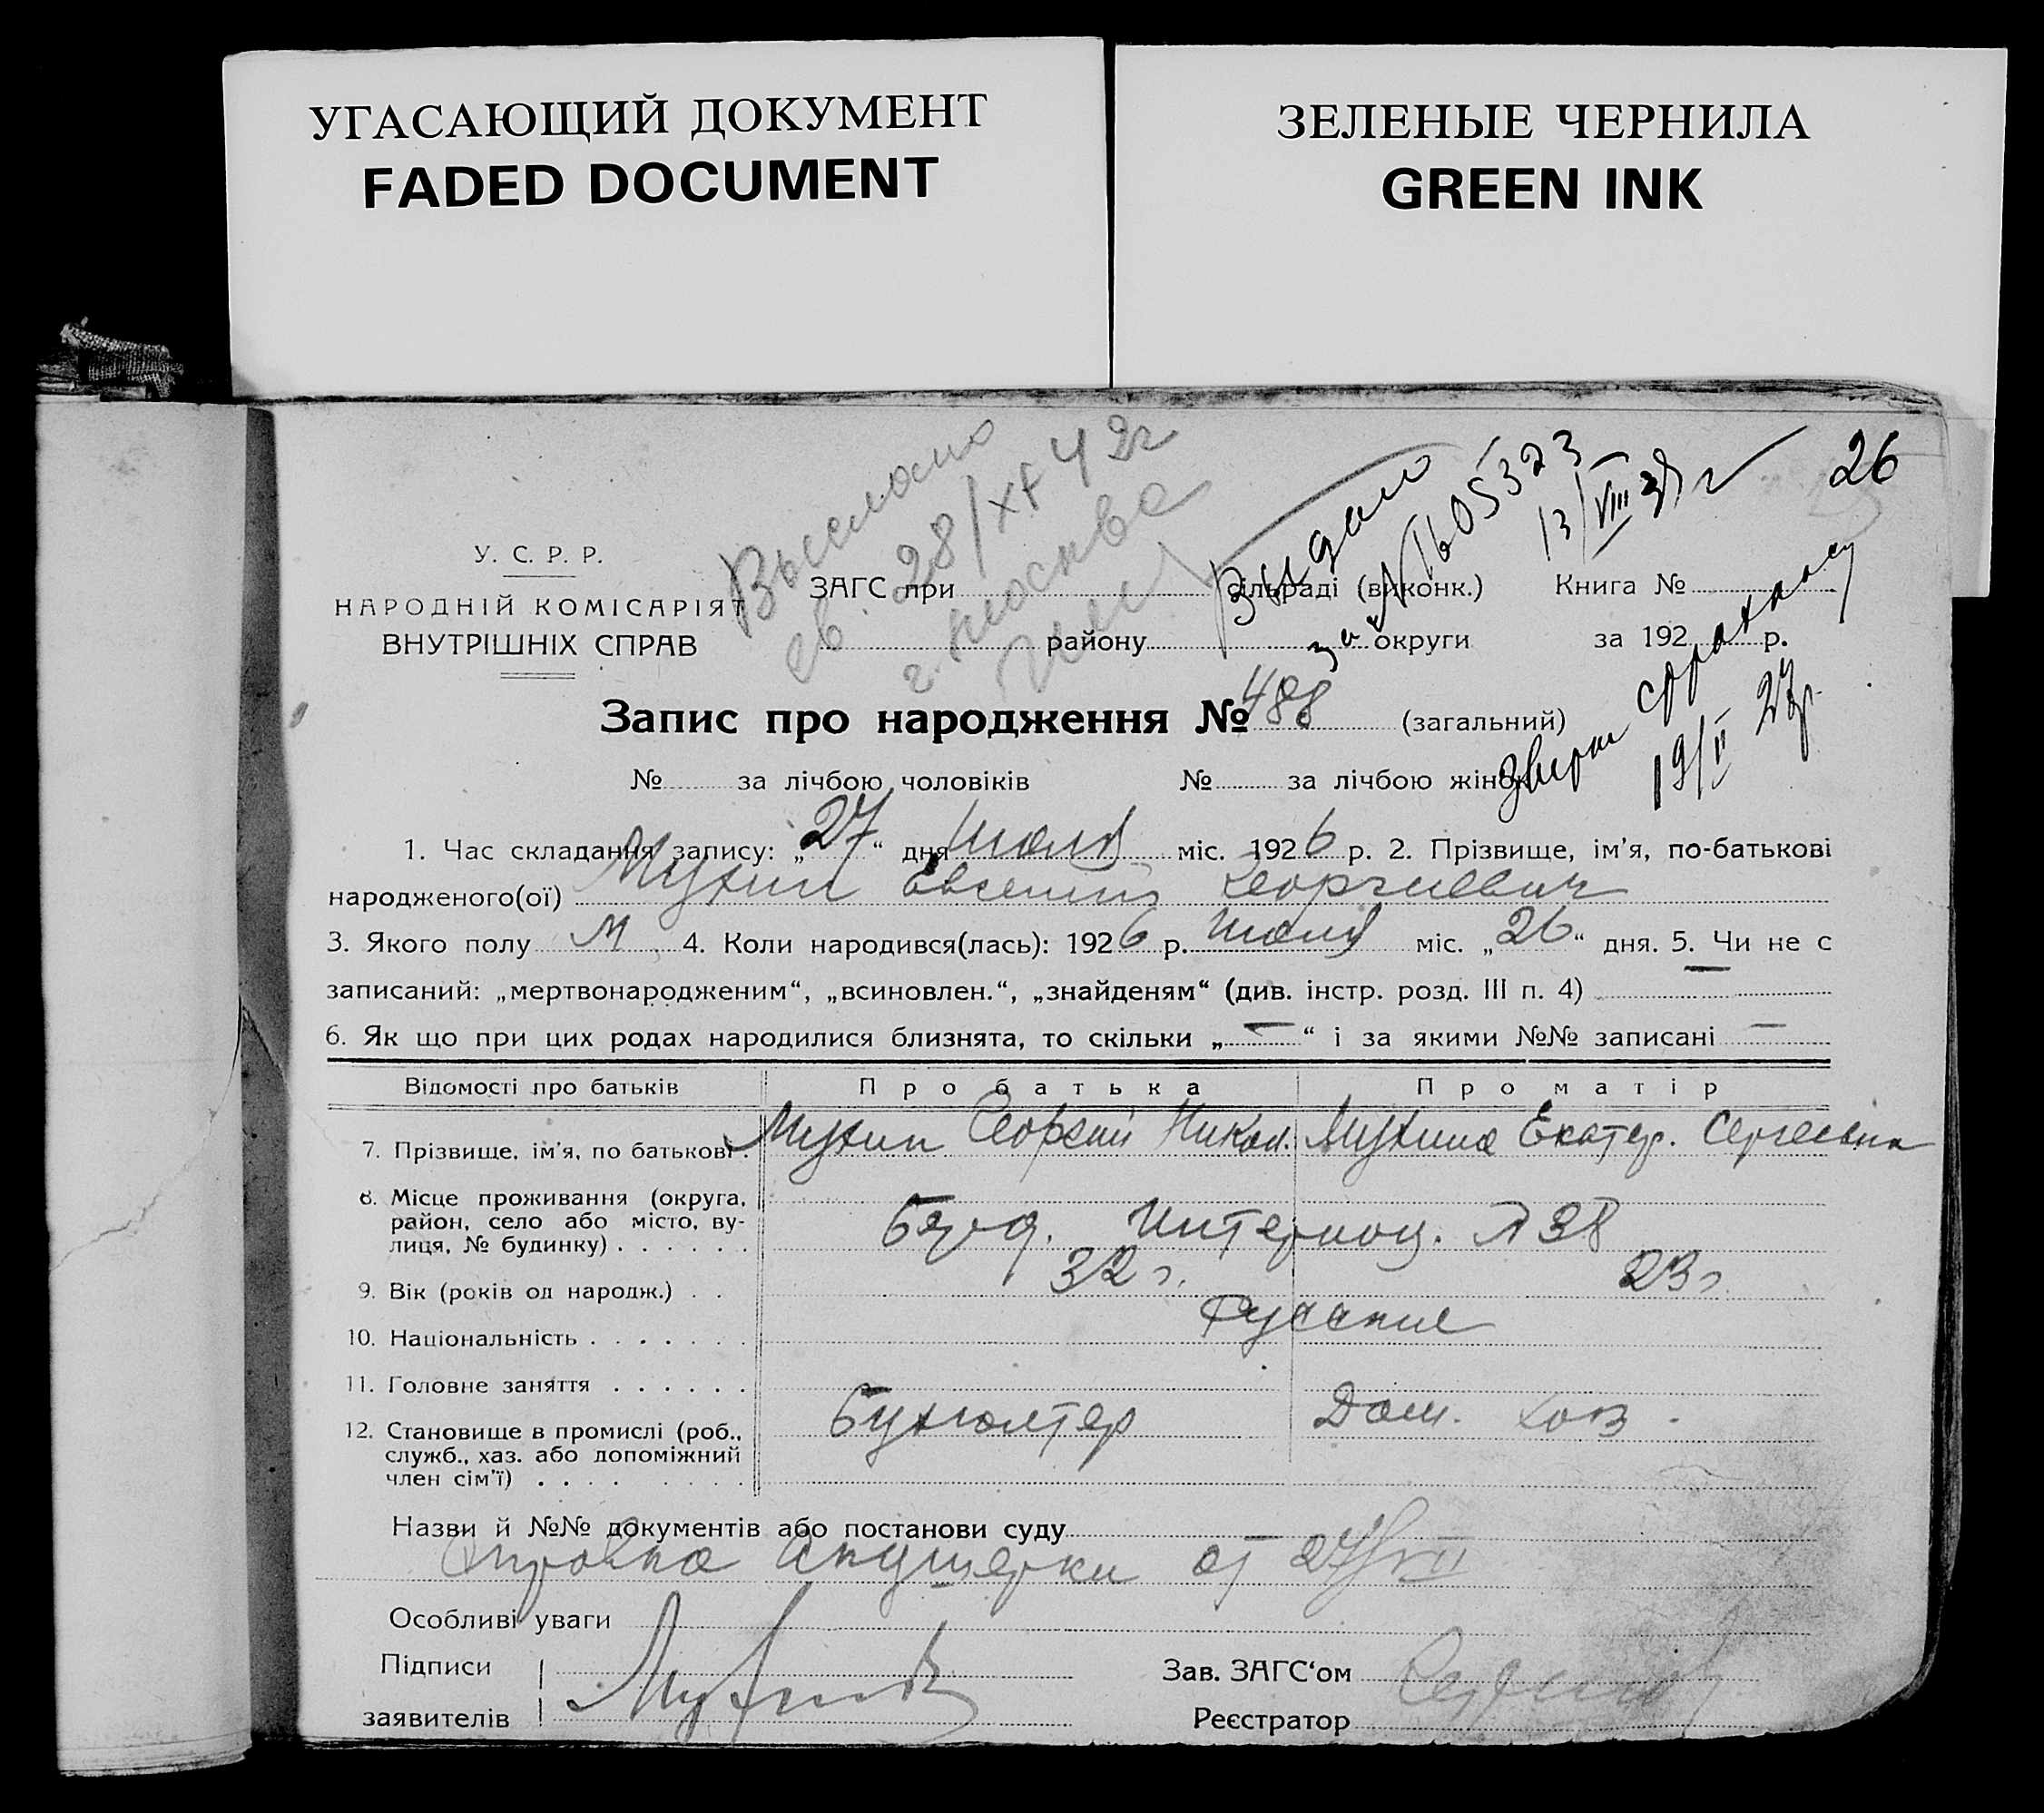 УГАСАЮЩИЙ ДОКУМЕНТ
FADED DOCUMENT
ЗЕЛЕНЫЕ ЧЕРНИЛА
GREEN INK
26
Выслано
св. 28/XI 42г
г. Москва
Выдано
за № 605323
13/VIII 39 г
У. С. Р. Р.
НАРОДНІЙ КОМІСАРІЯТ
ВНУТРІШНІХ СПРАВ
ЗАГС при сільраді (виконк.) Книга №
району округи за 192 р.
19/II 27р.
Запис про народження № 488 (загальний)
№ за лічбою чоловіків № за лічбою жінок
1. Час складання запису: „27“ дня Июля міс. 1926 р. 2. Прізвище, ім'я, по-батькові
народженого(ої) Мухин Евгений Георгиевич
3. Якого полу М 4. Коли народився(лась): 1926 р. Июля міс. „26“ дня. 5. Чи не є
записаний: „мертвонародженим“, „всиновлен.“, „знайденям“ (див. інстр. розд. III п. 4) —
6. Як що при цих родах народилися близнята, то скільки „—“ і за якими №№ записані —
Відомості про батьків Про батька Про матір
7. Прізвище, ім'я, по батькові . Мухин Георгий Никол. Мухина Екатер. Сергеевна
8. Місце проживання (округа,
район, село або місто, ву-
лиця, № будинку) . . . . . . Интернац. № 38
9. Вік (років од народж.) . . 32 г. 23 г.
10. Національність . . . . . . . Русские
11. Головне заняття . . . . . .
12. Становище в промислі (роб., Бухгалтер Дом. хоз.
служб., хаз. або допоміжний
член сім'ї) . . . .
Назви й №№ документів або постанови суду
Справка Акушерки от 27/VII
Особливі уваги
Підписи
заявителів Мухин
Зав. ЗАГС'ом
Реєстратор